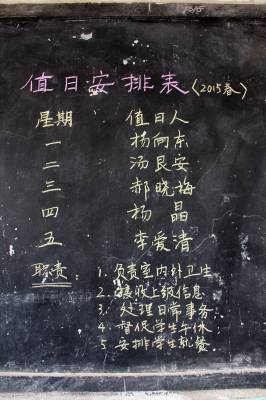 值日安排表（2015春）
星期 值日人
一 杨向东
二 汤艮安
三 郝晓梅
四 杨晶
五 李爱清
职责：1. 负责室内外卫生
2. 接收上级信息
3. 处理日常事务
4. 督促学生午休
5. 安排学生就餐